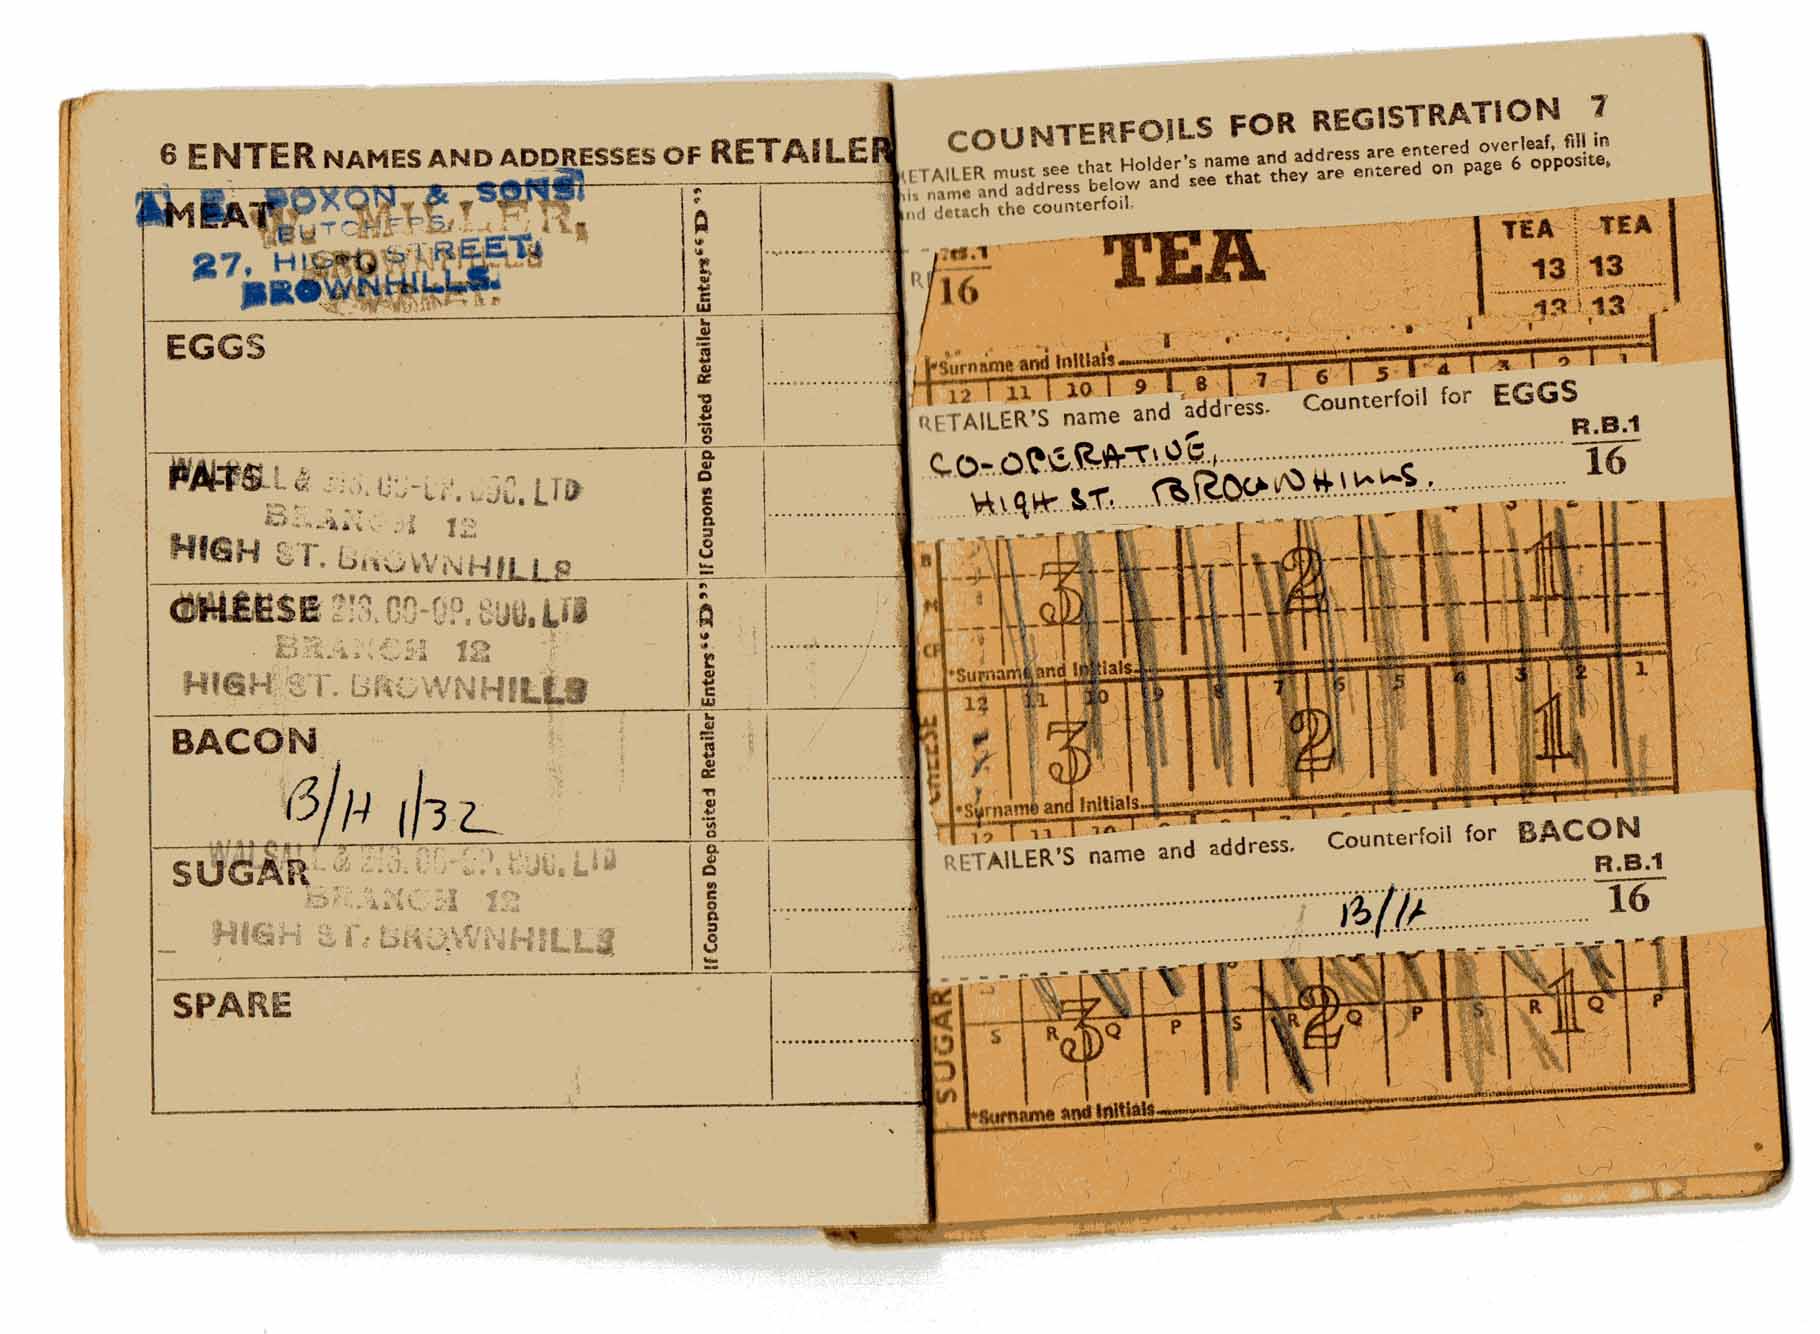 6 ENTER NAMES AND ADDRESSES OF RETAILER
MEAT
BOXON & SONS.
W. MILLER,
BUTCHERS,
27, HIGH STREET,
BROWNHILLS
BROWNHILLS.
EGGS
FATS
WALSALL & DIS. CO-OP. SOC. LTD
BRANCH 12
HIGH ST. BROWNHILLS
CHEESE
WALSALL & DIS. CO-OP. SOC. LTD
BRANCH 12
HIGH ST. BROWNHILLS
BACON
B/H 1/32
SUGAR
WALSALL & DIS. CO-OP. SOC. LTD
BRANCH 12
HIGH ST. BROWNHILLS
SPARE
If Coupons Deposited Retailer Enters "D"
If Coupons Deposited Retailer Enters "D"
COUNTERFOILS FOR REGISTRATION 7
RETAILER must see that Holder's name and address are entered overleaf, fill in
his name and address below and see that they are entered on page 6 opposite,
and detach the counterfoil.
16
TEA
TEA TEA
13 13
13 13
*Surname and Initials
12 11 10 9 8 7 6 5 4 3 2 1
RETAILER'S name and address. Counterfoil for EGGS
R.B.1
16
CO-OPERATIVE,
HIGH ST. BROWNHILLS.
3 2 1
*Surname and Initials
12 11 10 9 8 7 6 5 4 3 2 1
CHEESE
3 2 1
*Surname and Initials
12 11 10
RETAILER'S name and address. Counterfoil for BACON
R.B.1
16
B/H
SUGAR
3 2 1
S R Q P S R Q P S R Q P
*Surname and Initials